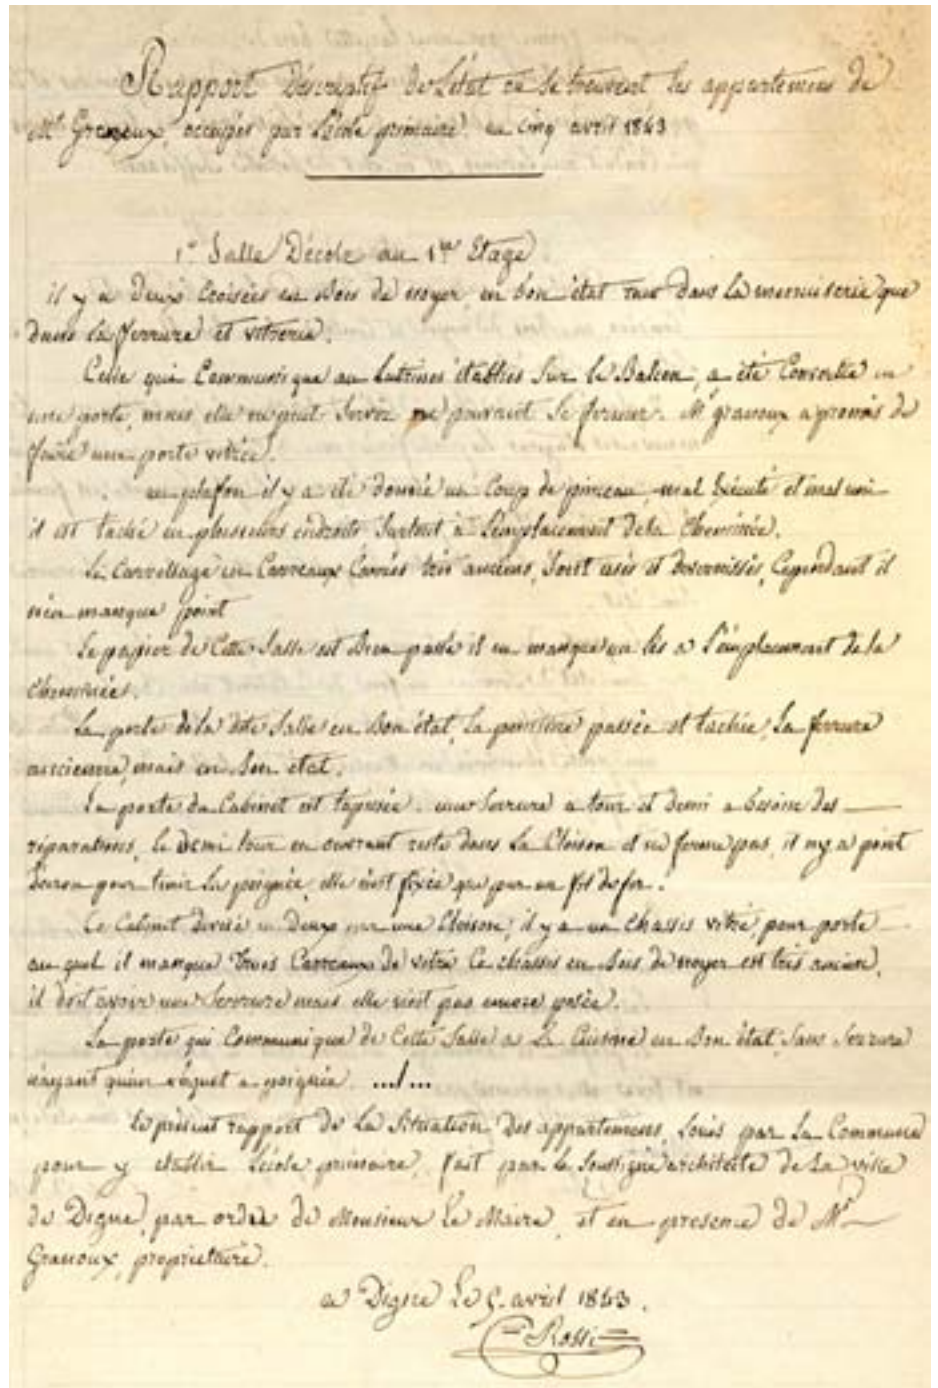 Rapport Descriptif de L'état ou se trouvent les appartemens de
Mr Granoux, occupés par L'école primaire, au cinq avril 1843
1° Salle D'école au 1er Etage
il y a Deux Croisées en Bois de noyer en bon état tant dans la menuiserie que
dans la ferrure et vitrerie.
Celle qui Communique au Latrines établies Sur le Balcon, a été Convertie en
une porte, mais elle ne peut Servir ne pouvant Se fermer. Mr granoux a promis de
faire une porte vitrée.
au plafon il y a été donné un Coup de pinceau mal Exécuté et mal uni
il est taché en plusieurs endroits Surtout à L'emplacement de la Cheminée.
Le Carrellage en Carreaux Carrés très anciens, Sont usés et Desvernissés, Cependant il
n'en manque point
Le papier de Cette Salle est Bien passé il en manque un lés a L'emplacement de la
Cheminée.
La porte de la dite Salle en Bon état, La peinture passée et tachée, La ferrure
ancienne, mais en Bon état.
La porte du Cabinet est tapissée. une Serrure a tour et demi a besoin des
réparations, le Demi tour en ouvrant reste dans La Cloison et ne ferme pas, il n'y a point
Decrou pour tenir La poignée, elle n'est fixée que par un fil de fer.
Ce Cabinet divisé en Deux par une Cloison, il y a un chassis vitré, pour porte
au quel il manque trois Carreaux de vitre Ce chassis en Bois de noyer est très ancien,
il doit avoir une Serrure mais elle n'est pas encore posée.
La porte qui Communique de Cette Salle a La Cuisine en Bon état, Sans Serrure
n'ayant qu'un l'oquet a poignée. .../...
Le présent rapport de La Situation des appartemens, Loués par La Commune
pour y établir L'école primaire, fait par le Soussigné architecte de La ville
de Digne, par ordre de Monsieur Le Maire, et en presence de Mr
Granoux, propriétaire.
a Digne Le 5. avril 1843.
Rossi